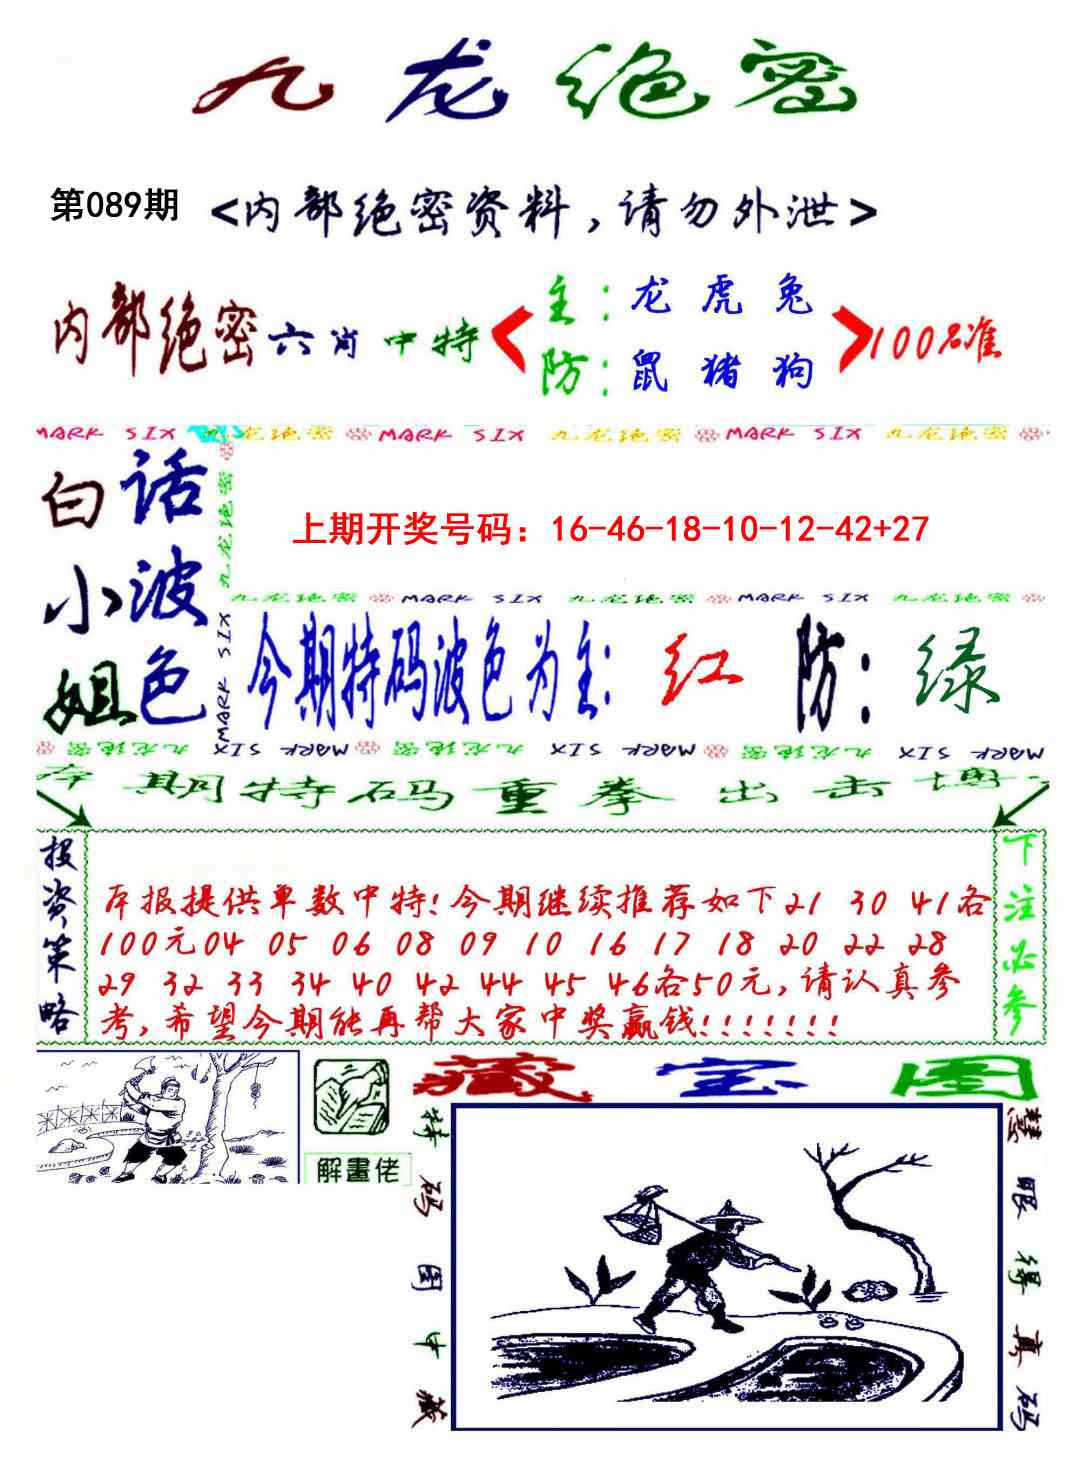 九龙绝密
第089期 <内部绝密资料,请勿外泄>
内部绝密六肖中特
主:龙 虎 兔
防:鼠 猪 狗
100%准
MARK SIX 九龙绝密 MARK SIX 九龙绝密 MARK SIX 九龙绝密
白话
小波
姐色
九龙绝密
MARK SIX
上期开奖号码：16-46-18-10-12-42+27
九龙绝密 MARK SIX 九龙绝密 MARK SIX 九龙绝密
今期特码波色为主:红 防:绿
九龙绝密 MARK SIX 九龙绝密 MARK SIX 九龙绝密 MARK SIX
本期特码重拳出击博
投资策略
本报提供单数中特!今期继续推荐如下21 30 41各
100元04 05 06 08 09 10 16 17 18 20 22 28
29 32 33 34 40 42 44 45 46各50元,请认真参
考,希望今期能再帮大家中奖赢钱!!!!!!!
下注必参
解畫佬
藏宝图
特码图中藏
慧眼得真码